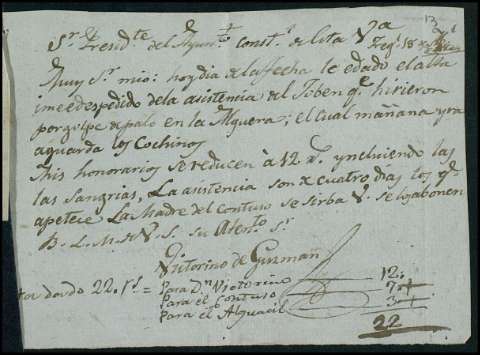 Sr. Presidte. del Ayunto. constl. de esta Va.
Muy Sr. mio: hoy dia de la fecha le e dado el alta
i me e despedido de la asistencia del Joben qe. hirieron
por golpe de palo en la Alguera; el cual mañana yra
aguarda los Cochinos
Mis honorarios se reducen à 12 rs. yncluiendo las
las sangrias, La asistencia son x cuatro dias los qe.
apetece La Madre del contuso se serba V. se los abonen
B. L. M. de V. S. su Atento. Sr.
Vitorino de Guzman
22. rs. = Para Dn. Victorino 12.
Para el Contuso 7
Para el Alguacil 3
22